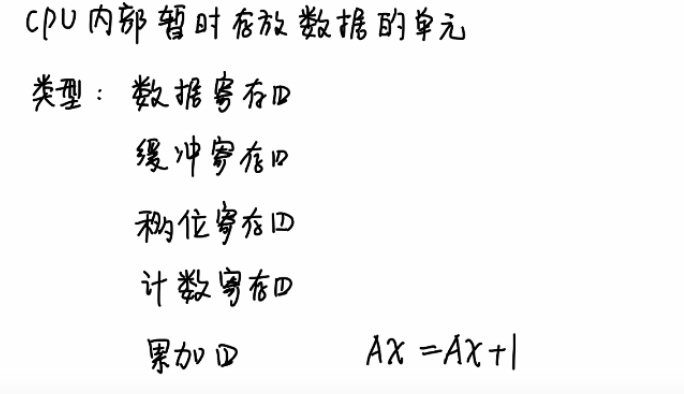 CPU内部暂时存放数据的单元
类型：数据寄存器
缓冲寄存器
移位寄存器
计数寄存器
累加器 AX=AX+1